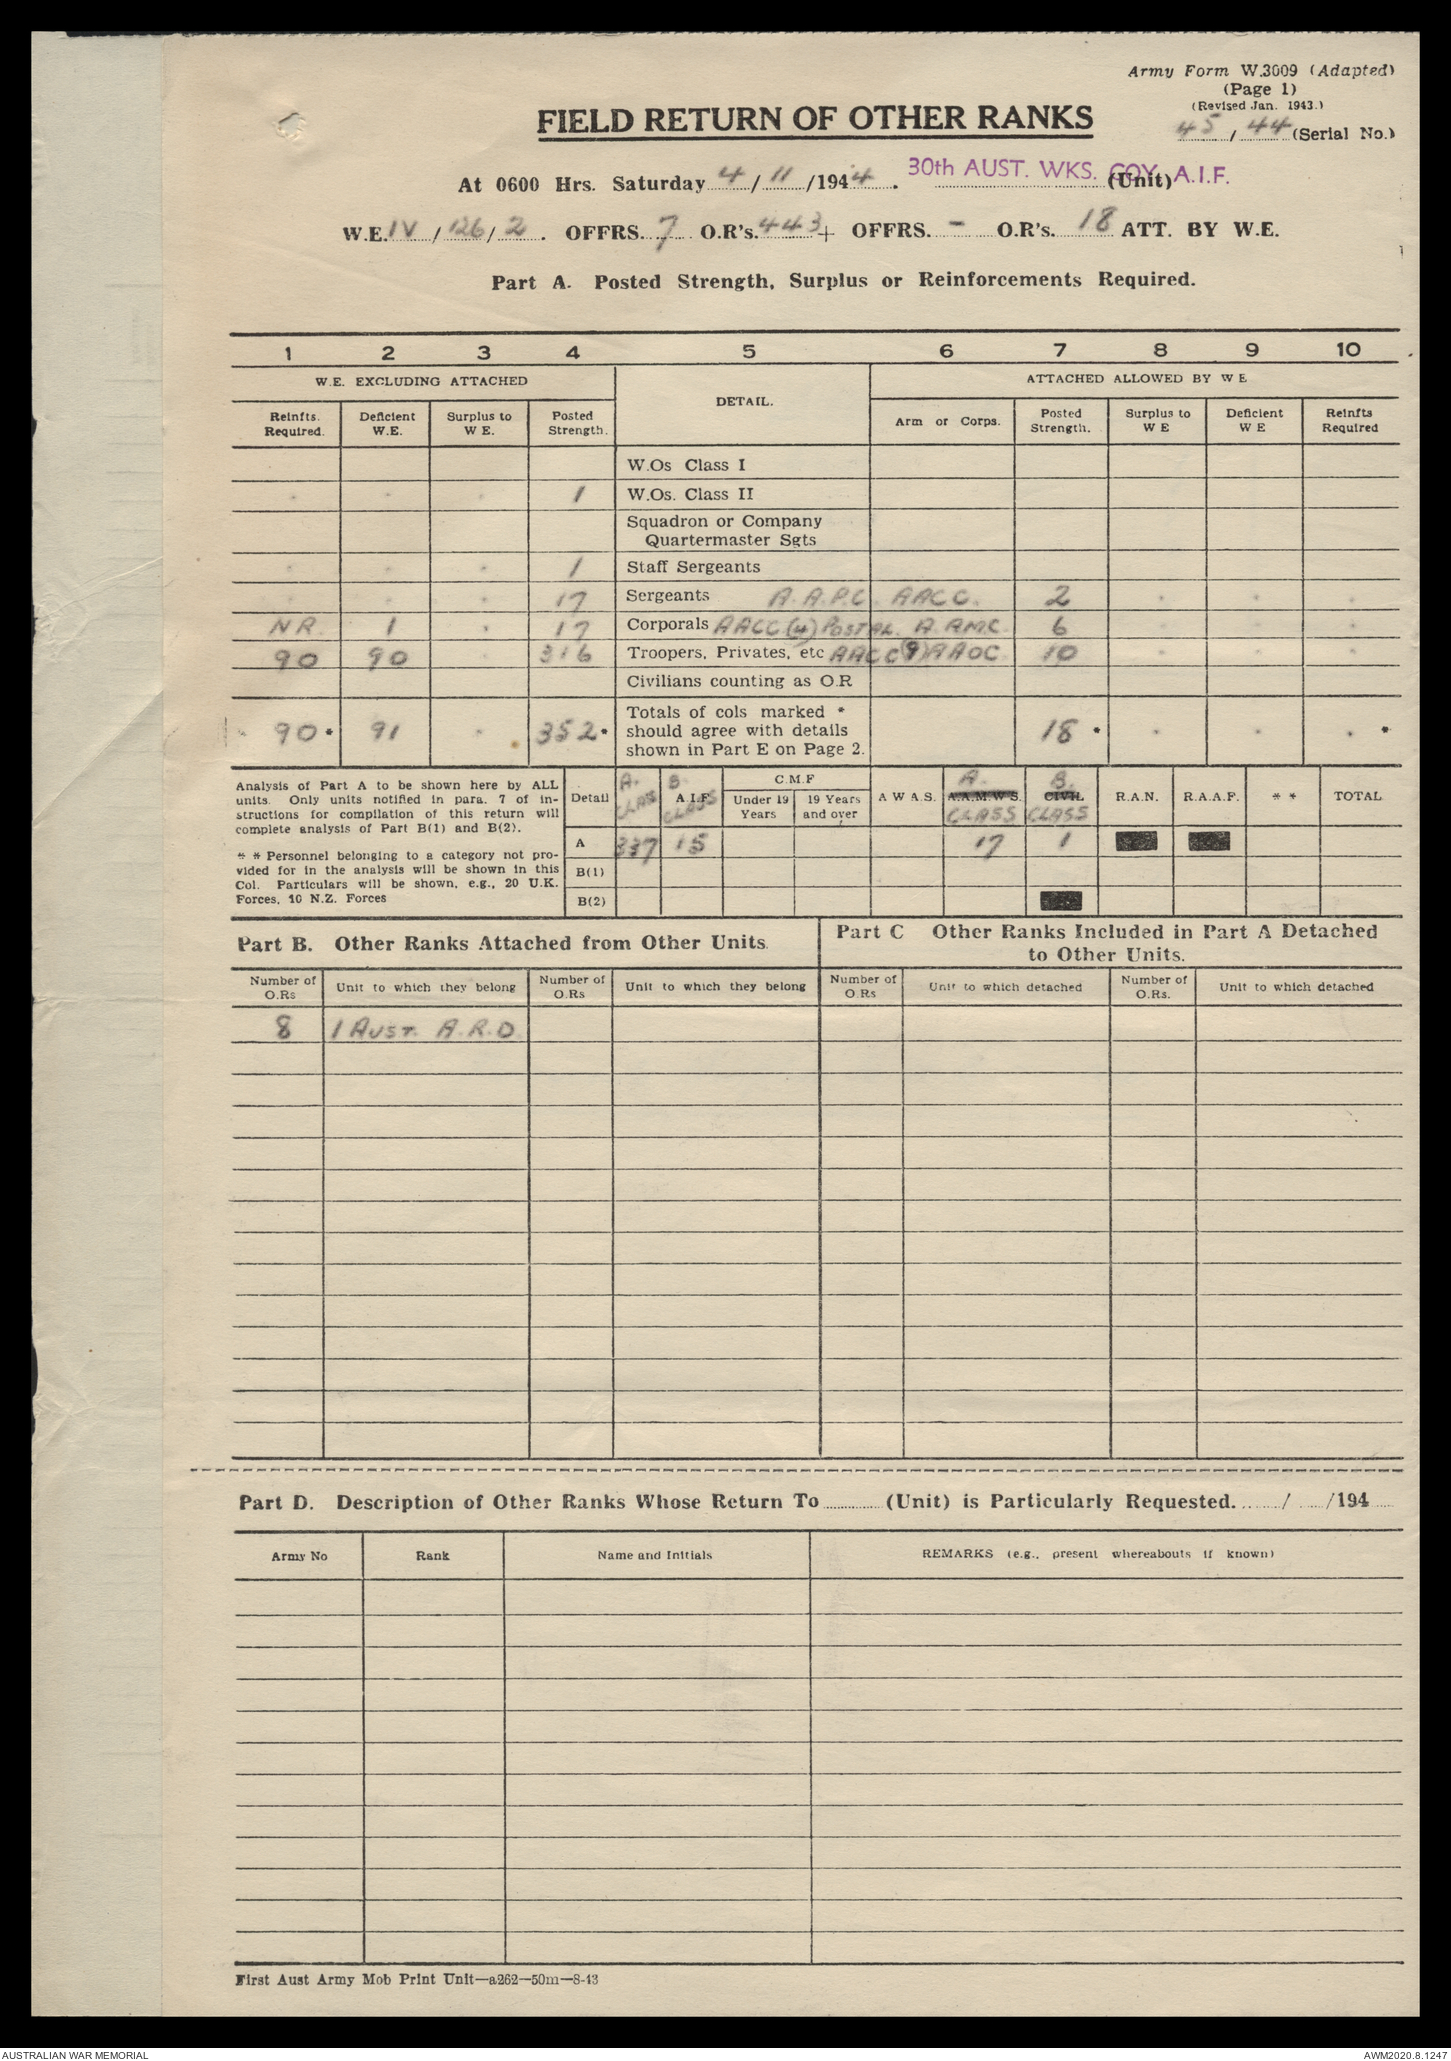 Army Form W.3009 (Adapted)
(Page 1)
(Revised Jan. 1943.)
FIELD RETURN OF OTHER RANKS
45 / 44 (Serial No.)
At 0600 Hrs. Saturday 4 / 11 /1944 . 30th AUST. WKS. COY. A.I.F. (Unit)
W.E. IV / 126 / 2 . OFFRS. 7 O.R's. 443 + OFFRS. - O.R's. 18 ATT. BY W.E.
Part A. Posted Strength, Surplus or Reinforcements Required.
1 2 3 4 5 6 7 8 9 10
W.E. EXCLUDING ATTACHED DETAIL. ATTACHED ALLOWED BY W E
Reinfts. Required. Deficient W.E. Surplus to W E. Posted Strength. Arm or Corps. Posted Strength. Surplus to W E Deficient W E Reinfts Required
W.Os Class I
- - - 1 W.Os. Class II
Squadron or Company
Quartermaster Sgts
- - - 1 Staff Sergeants
- - - 17 Sergeants A.A.P.C. AACC. 2 - - -
NR. 1 - 17 Corporals AACC (4) POSTAL. A.AMC. 6 - - -
90 90 316 Troopers, Privates, etc AACC (9) AAOC 10 - - -
Civilians counting as O.R
Totals of cols marked *
90 * 91 - 352 * should agree with details 18 * - - - *
shown in Part E on Page 2.
Analysis of Part A to be shown here by ALL
units. Only units notified in para. 7 of in-
structions for compilation of this return will
complete analysis of Part B(1) and B(2).
* * Personnel belonging to a category not pro-
vided for in the analysis will be shown in this
Col. Particulars will be shown, e.g., 20 U.K.
Forces, 10 N.Z. Forces
Detail A. CLASS B. A.I.F. CLASS C.M.F Under 19 Years 19 Years and over A W A S. A. A.A.M.W.S. CLASS B. CIVIL CLASS R.A.N. R.A.A.F. * * TOTAL
A 337 15 17 1
B(1)
B(2)
Part B. Other Ranks Attached from Other Units.
Part C Other Ranks Included in Part A Detached
to Other Units.
Number of O.Rs Unit to which they belong Number of O.Rs Unit to which they belong Number of O.Rs Unit to which detached Number of O.Rs. Unit to which detached
8 1 AUST. A.R.D.
Part D. Description of Other Ranks Whose Return To (Unit) is Particularly Requested. / /194
Army No Rank Name and Initials REMARKS (e.g., present whereabouts if known)
First Aust Army Mob Print Unit—a262—50m—8-43
AUSTRALIAN WAR MEMORIAL AWM2020.8.1247